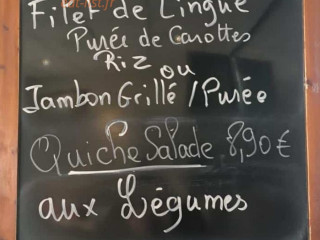 Filet de Lingue
Purée de Carottes
Riz ou
Jambon Grillé / Purée
Quiche Salade 8,90€
aux Légumes